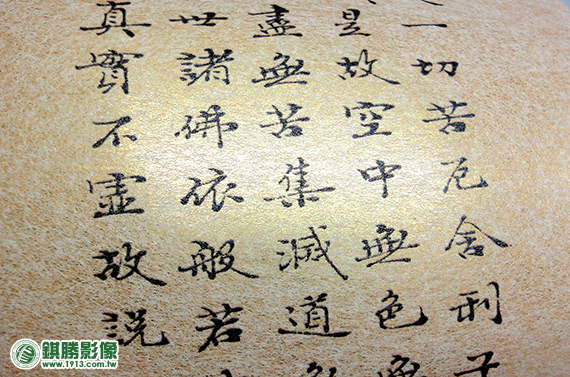 一切苦厄舍利子
是故空中無色無
盡無苦集滅道
世諸佛依般若
真實不虛故說
錤勝影像
www.1913.com.tw